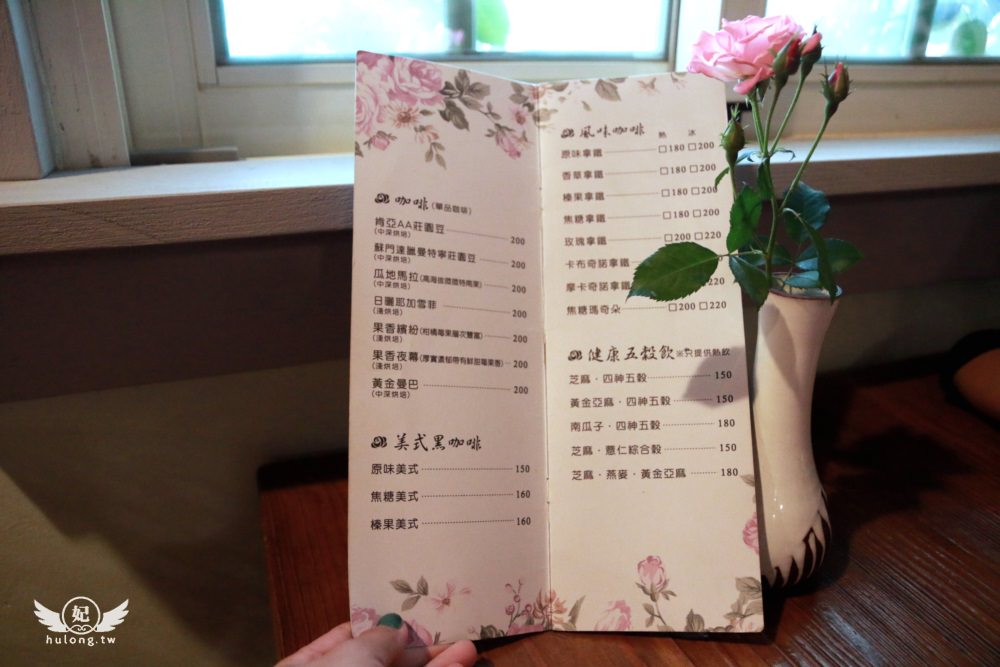 咖啡(單品咖啡)
肯亞AA莊園豆 200
(中深烘培)
蘇門達臘曼特寧莊園豆 200
(中深烘培)
瓜地馬拉 200
(中深烘培)
日曬耶加雪菲 200
(淺烘培)
果香繽紛(柑橘莓果層次豐富) 200
(淺烘培)
果香夜幕(厚實濃郁帶有鮮甜莓果香) 200
(淺烘培)
黃金曼巴 200
(中深烘培)
美式黑咖啡
原味美式 150
焦糖美式 160
榛果美式 160
風味咖啡 熱 冰
原味拿鐵 □180 □200
香草拿鐵 □180 □200
榛果拿鐵 □180 □200
焦糖拿鐵 □180 □200
玫瑰拿鐵 □200 □220
卡布奇諾拿鐵
摩卡奇諾拿鐵 220
焦糖瑪奇朵 □200 □220
健康五穀飲 ※只提供熱飲
芝麻‧四神五穀 150
黃金亞麻‧四神五穀 150
南瓜子‧四神五穀 180
芝麻‧薏仁綜合穀 150
芝麻‧燕麥‧黃金亞麻 180
妃
hulong.tw